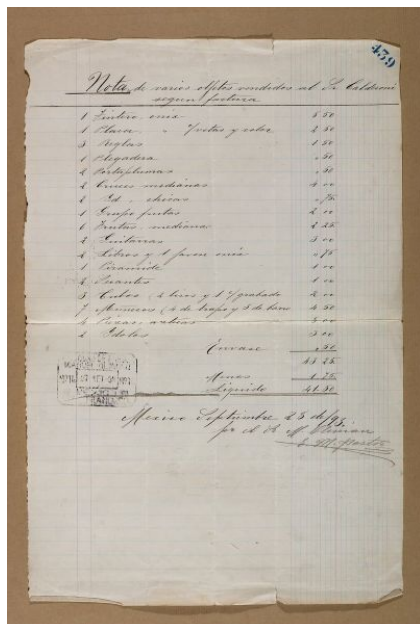 439
Nota de varios objtos vendidos al Sr Calderoni
segun factura
1 Tintero onix 5 50
1 Placa " 
3 Reglas 1 50
1 Plegadera " 50
2 Portaplumas " 50
2 Cruces medianas 4 00
2 Id " chicas " 75
1 Grupo frutas 2 00
6 Frutas mediana 2 25
2 Guitarras 3 00
2 Libros y 1 onix " 75
1 Piramide 1 00
2 Guantes 1 00
3 Cubos (2 lisos y 1 grabado 2 00
7 Muñecos (4 de trapo y 3 de barro 4 50
4 Piezas
2 Idolos 3 00
Envase " 50
43 25
Menos 1 75
Liquido 41 50
Mexico Septiembre 23 de